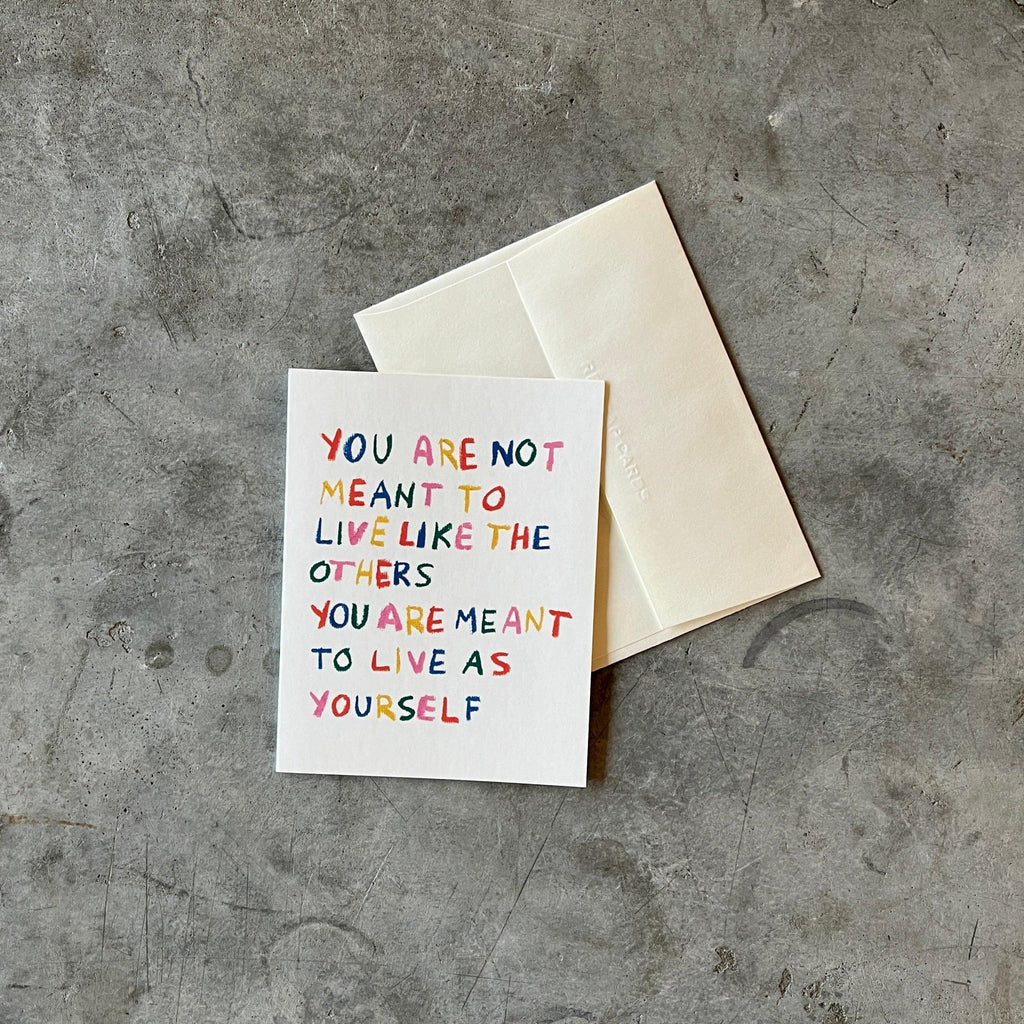 YOU ARE NOT
MEANT TO
LIVE LIKE THE
OTHERS
YOU ARE MEANT
TO LIVE AS
YOURSELF
CARDS